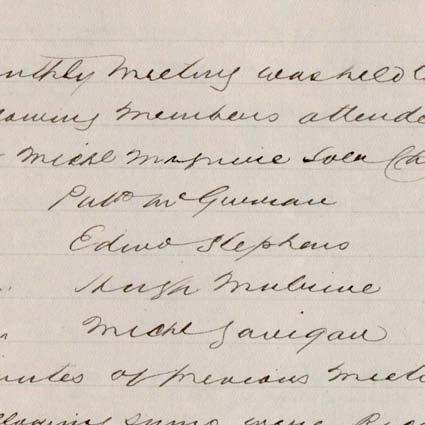 onthly Meeting was held
lowing Members attende
Michl Maguire Solr (Ch
Patk McGurman
Edwd Stephens
Hugh Mulvine
Michl Garigan
inutes of previous Meet
llowing sums were